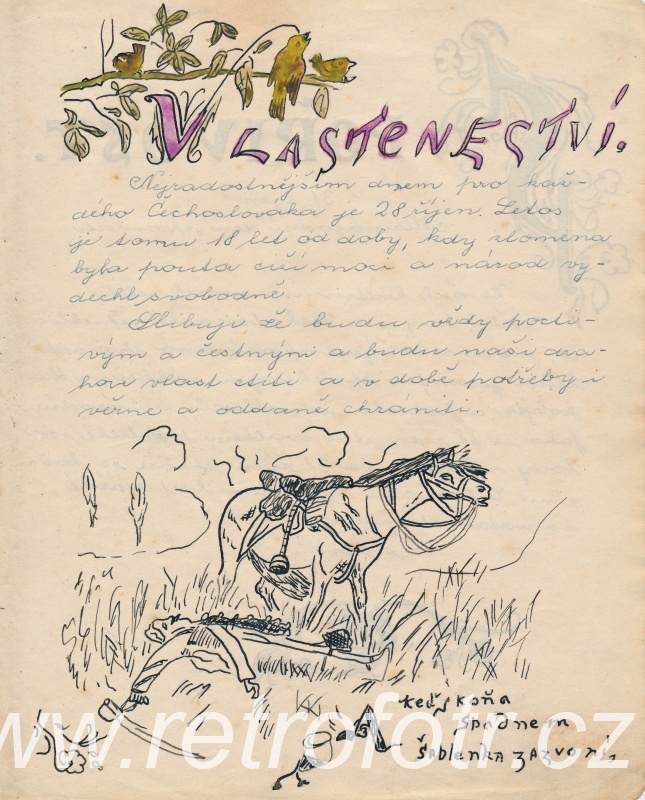 VLASTENECTVÍ.
Nejradostnějším dnem pro kaž-
dého Čechoslováka je 28 říjen. Letos
je tomu 18 let od doby, kdy zlomena
byla pouta cizí moci a národ vy-
dechl svobodně.
Slibuji, že budu vždy pocti-
vým a čestným i a budu naši dra-
hou vlast ctíti a v době potřeby i
věrně a oddaně chrániti.
keď s koňa
spadnem
šablenka zazvoní,
www.retrofoti.cz